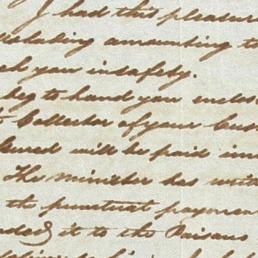 I had this pleasure
including amounting to
each you in safety.
beg to hand you enclos
Collector of your Cus
will be paid im
The minister has writ
the punctual paymen
it to the Paisano